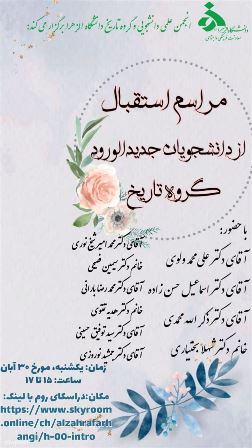 دانشگاه الزهرا
انجمن علمی دانشجویی و گروه تاریخ دانشگاه الزهرا برگزار می کند:
مراسم استقبال
از دانشجویان جدیدالورود
گروه تاریخ
با حضور:
آقای دکتر علی محمد ولوی
آقای دکتر اسماعیل حسن زاده
آقای دکتر ذکرالله محمدی
خانم دکتر شهلا بختیاری
آقای دکتر محمد امیر شیخ نوری
خانم دکتر سیمین فصیحی
آقای دکتر محمدرضا بارانی
خانم دکتر هدیه تقوی
آقای دکتر سید توفیق حسینی
آقای دکتر جمشید نوروزی
زمان: یکشنبه، مورخ ۳۰ آبان
ساعت: ۱۵ تا ۱۷
مکان: در اسکای روم با لینک:
https://www.skyroom
.online/ch/alzahrafarh
angi/h-00-intro